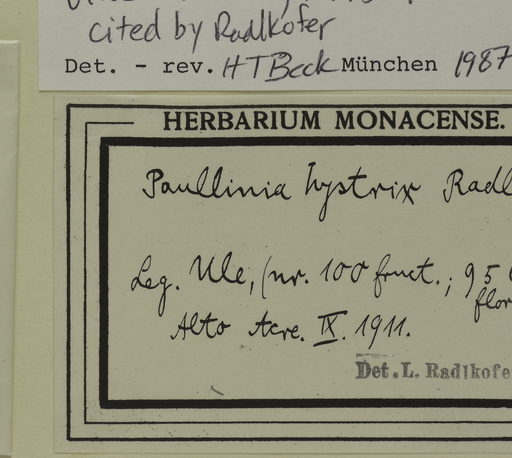 cited by Radlkofer
Det. - rev. HTBeck München 1987
HERBARIUM MONACENSE.
Paullinia hystrix Radl
Leg. Ule, (nr. 100 fruct.; 95
flor
Alto Acre. IX. 1911.
Det. L. Radlkofe